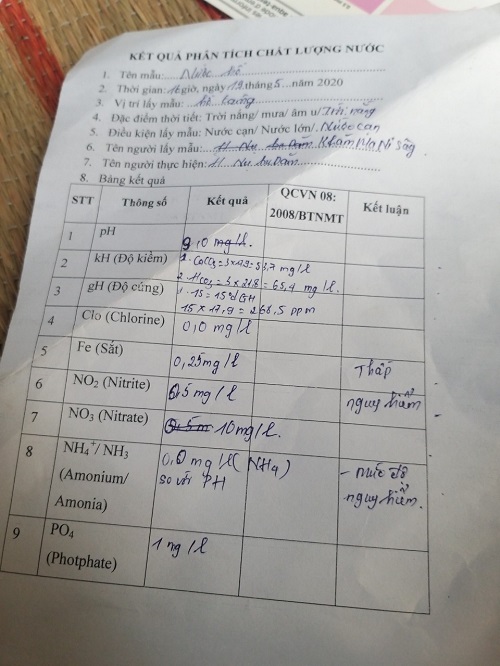 KẾT QUẢ PHÂN TÍCH CHẤT LƯỢNG NƯỚC
1. Tên mẫu: Nước hồ
2. Thời gian: 16 giờ, ngày 19 tháng 5 năm 2020
3. Vị trí lấy mẫu:
4. Đặc điểm thời tiết: Trời nắng/ mưa/ âm u/ Trời nắng
5. Điều kiện lấy mẫu: Nước cạn/ Nước lớn/ Nước cạn
6. Tên người lấy mẫu:
7. Tên người thực hiện:
8. Bảng kết quả
STT Thông số Kết quả QCVN 08: 2008/BTNMT Kết luận
1 pH 9.0 mg/l.
2 kH (Độ kiềm) 1. CaCO3 = 3x17,9 = 53,7 mg/l
2. HCO3 = 3x21,8 = 65,4 mg/l.
3 gH (Độ cứng) 1. 15 = 15°dGH
15 x 17,9 = 268,5 ppm
4 Clo (Chlorine) 0,0 mg/l
5 Fe (Sắt) 0,25 mg/l Thấp
6 NO2 (Nitrite) 0,5 mg/l nguy hiểm
7 NO3 (Nitrate) 10 mg/l.
8 NH4+/ NH3 0,0 mg/l (NH4) - mức độ
(Amonium/ so với PH nguy hiểm.
Amonia)
9 PO4 1 mg/l
(Photphate)